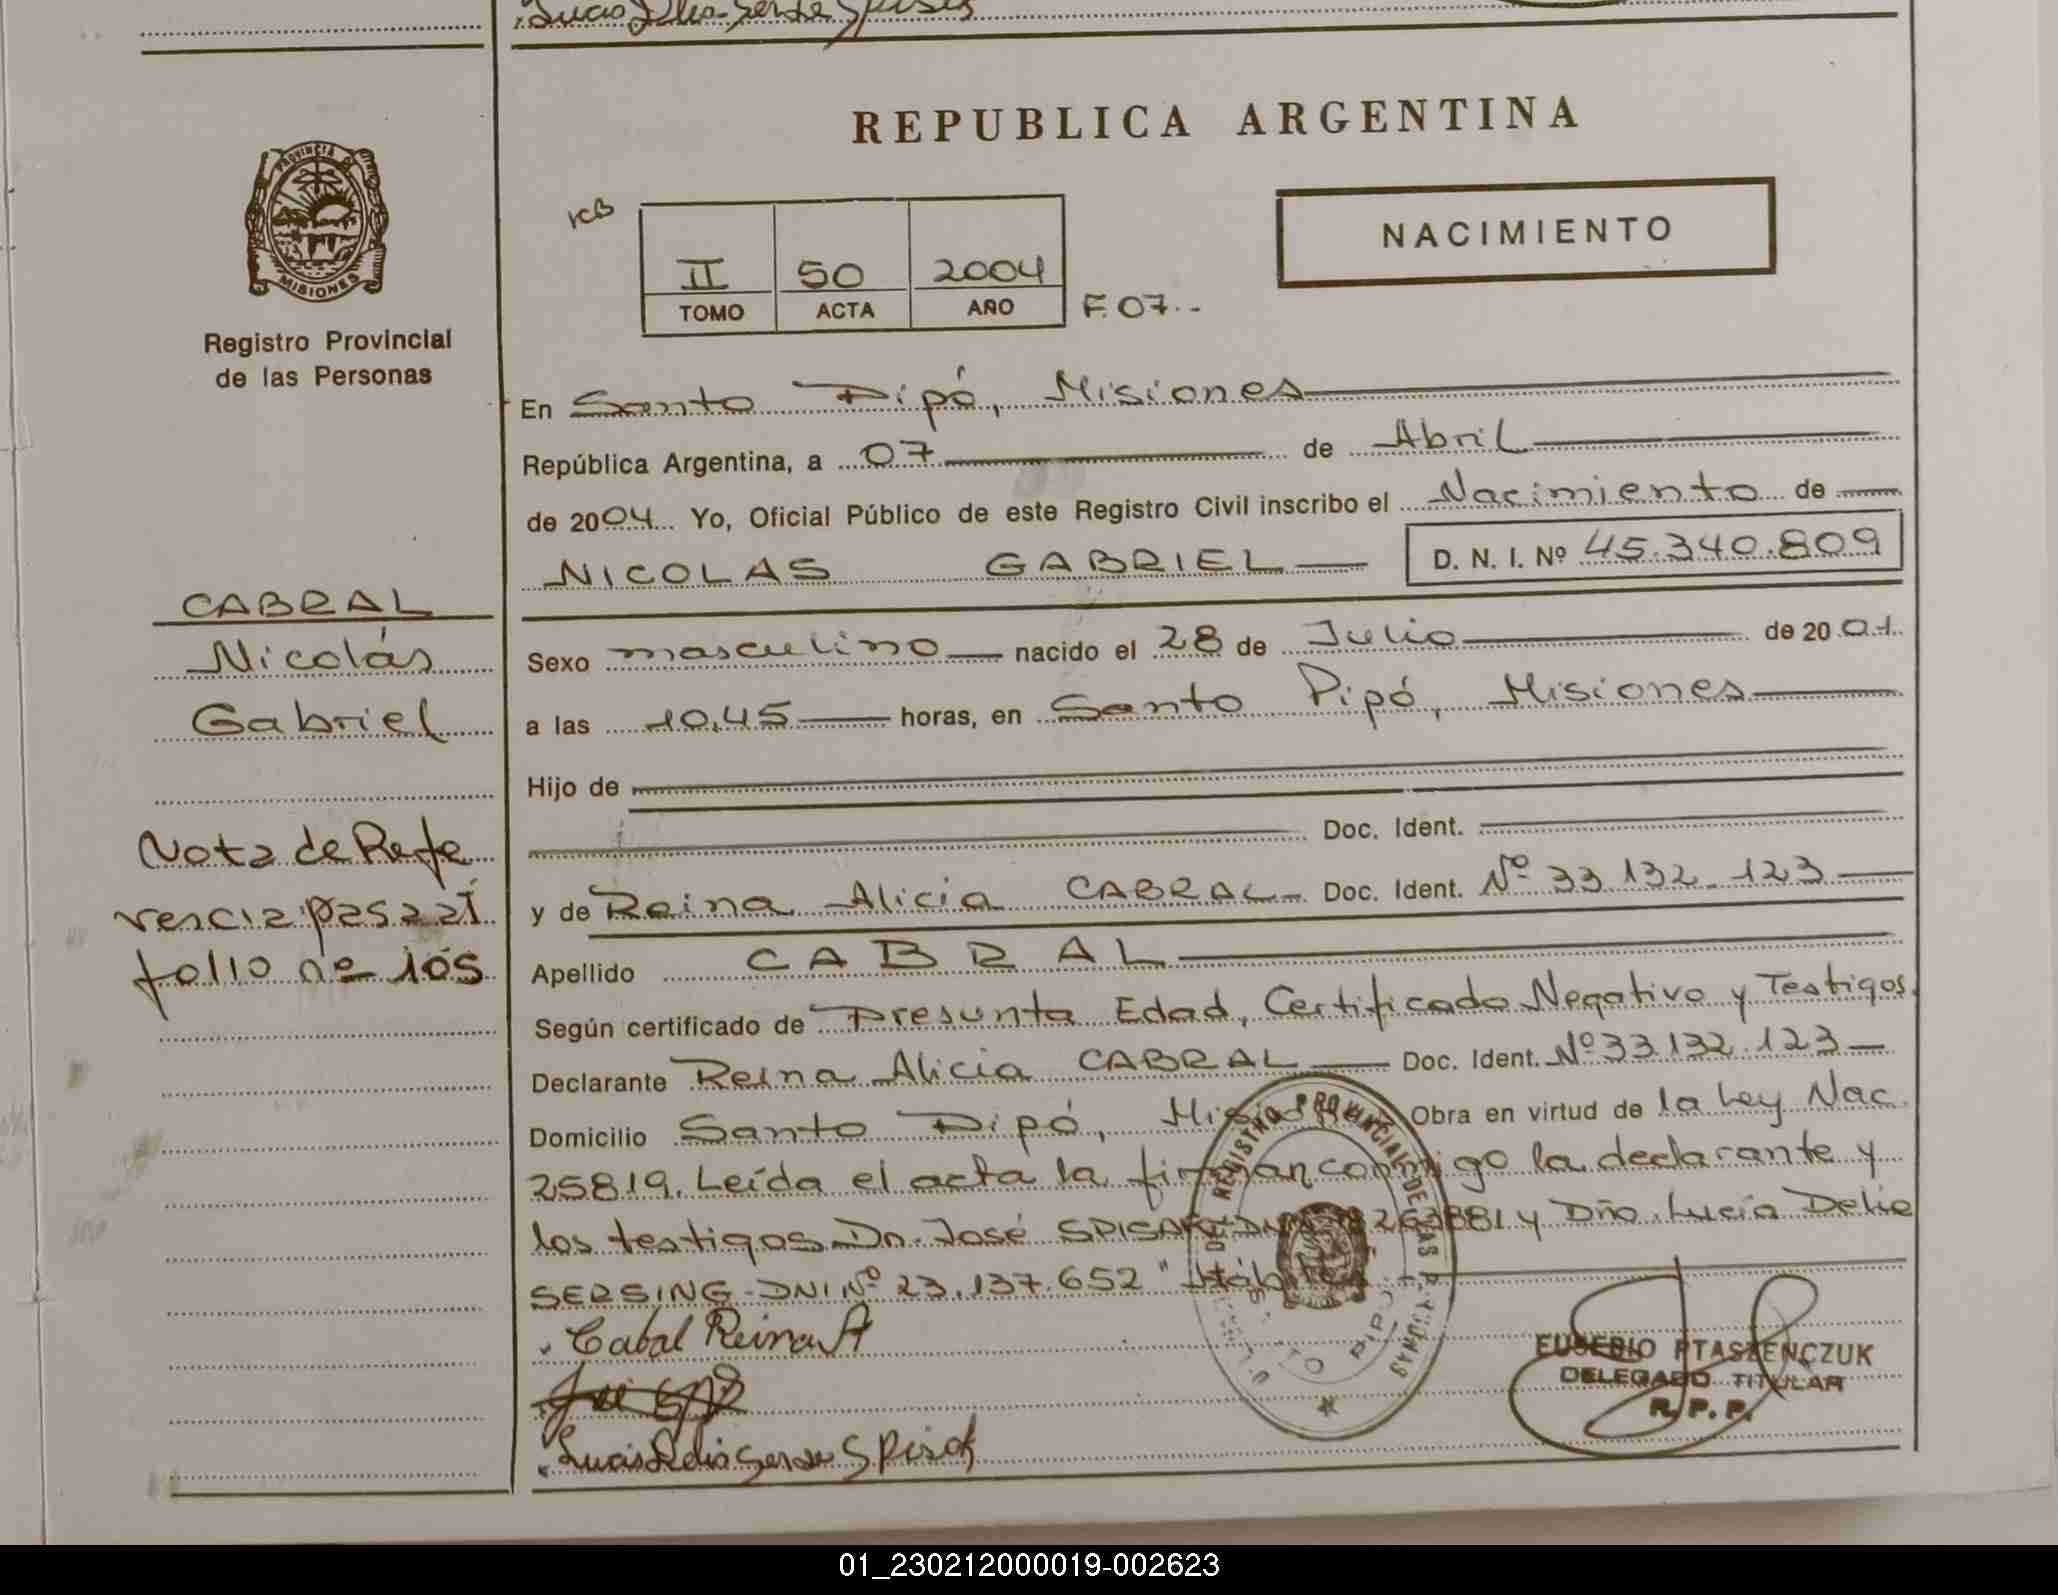 REPUBLICA ARGENTINA
NACIMIENTO
PROVINCIA DE
MISIONES
Registro Provincial
de las Personas
II 50 2004
TOMO ACTA AÑO
F. 07.-
En Santo Pipó, Misiones
República Argentina, a 07 de Abril
de 2004 Yo, Oficial Público de este Registro Civil inscribo el Nacimiento de
NICOLAS GABRIEL D. N. I. Nº 45.340.809
CABRAL
Nicolás
Gabriel
Sexo masculino nacido el 28 de Julio de 2001.
a las 10,45 horas, en Santo Pipó, Misiones
Hijo de
Doc. Ident.
y de Reina Alicia CABRAL- Doc. Ident. Nº 33.132.123
Nota de Refe
rencia pasa al
folio nº 105
Apellido CABRAL
Según certificado de Presunta Edad, Certificado Negativo y Testigos.
Declarante Reina Alicia CABRAL Doc. Ident. Nº 33.132.123
Domicilio Santo Pipó, Misiones Obra en virtud de la Ley Nac.
25819. Leída el acta la firman conmigo la declarante y
los testigos Dn. José y Dña. Lucía Delia
SERSING-DNI Nº 23.137.652
REGISTRO PROVINCIAL DE LAS PERSONAS
Cabral Reina A
EUSEBIO PTASZENCZUK
DELEGADO TITULAR
R. P. P.
01_230212000019-002623